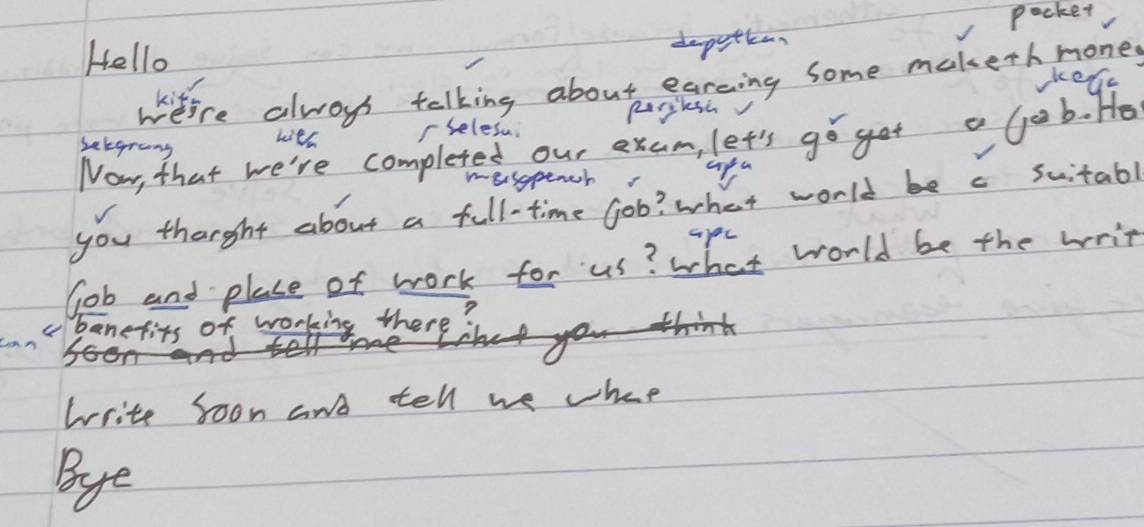 pocket
Hello dapatkan
we're always talking about earning some maketh money
kita
sekarang kita selesai periksa kerja
Now, that we're completed our exam, let's go get a Job. Ha
apa
you thorght about a full-time Job? what would be a suitabl
apa
Job and place of work for us? what would be the writ
benefits of working there?
soon and tell me what you think
Write soon and tell we whae
Bye